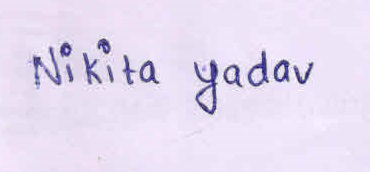 Nikita yadav